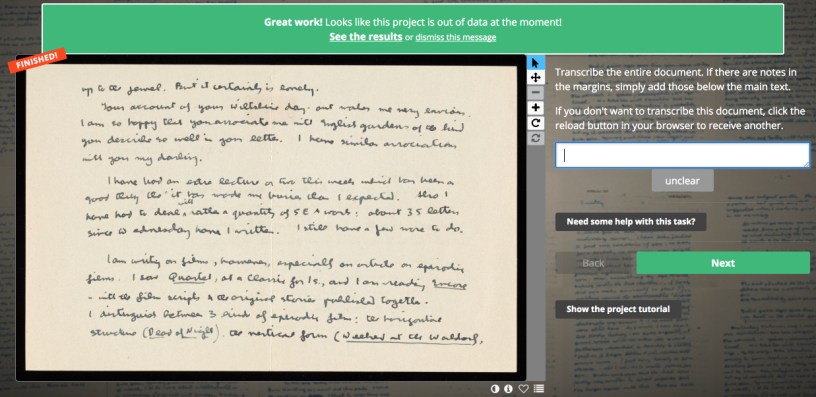 Great work! Looks like this project is out of data at the moment!
See the results or dismiss this message
FINISHED!
up to the jewel. But it certainly is lonely.
Your account of your Wiltshire day-out makes me very envious.
I am so happy that you associate me with English gardens of the kind
you describe so well in your letter. I have similar associations
with you my darling.
I have had an extra lecture or two this week which has been a
good thing tho' it has made me busier than I expected. Also I
have had to deal with rather a quantity of S E A work: about 35 letters
since Wednesday have I written. I still have a few more to do.
I am writing on films, however, especially an article on episodic
films. I saw Quartet, at a Classic for 1s., and I am reading Encore
- with the film scripts & the original stories published together.
I distinguish between 3 kinds of episodic film: the horizontal
structure (Dead of Night), the vertical form (Weekend at the Waldorf,
Transcribe the entire document. If there are notes in
the margins, simply add those below the main text.
If you don't want to transcribe this document, click the
reload button in your browser to receive another.
unclear
Need some help with this task?
Back
Next
Show the project tutorial